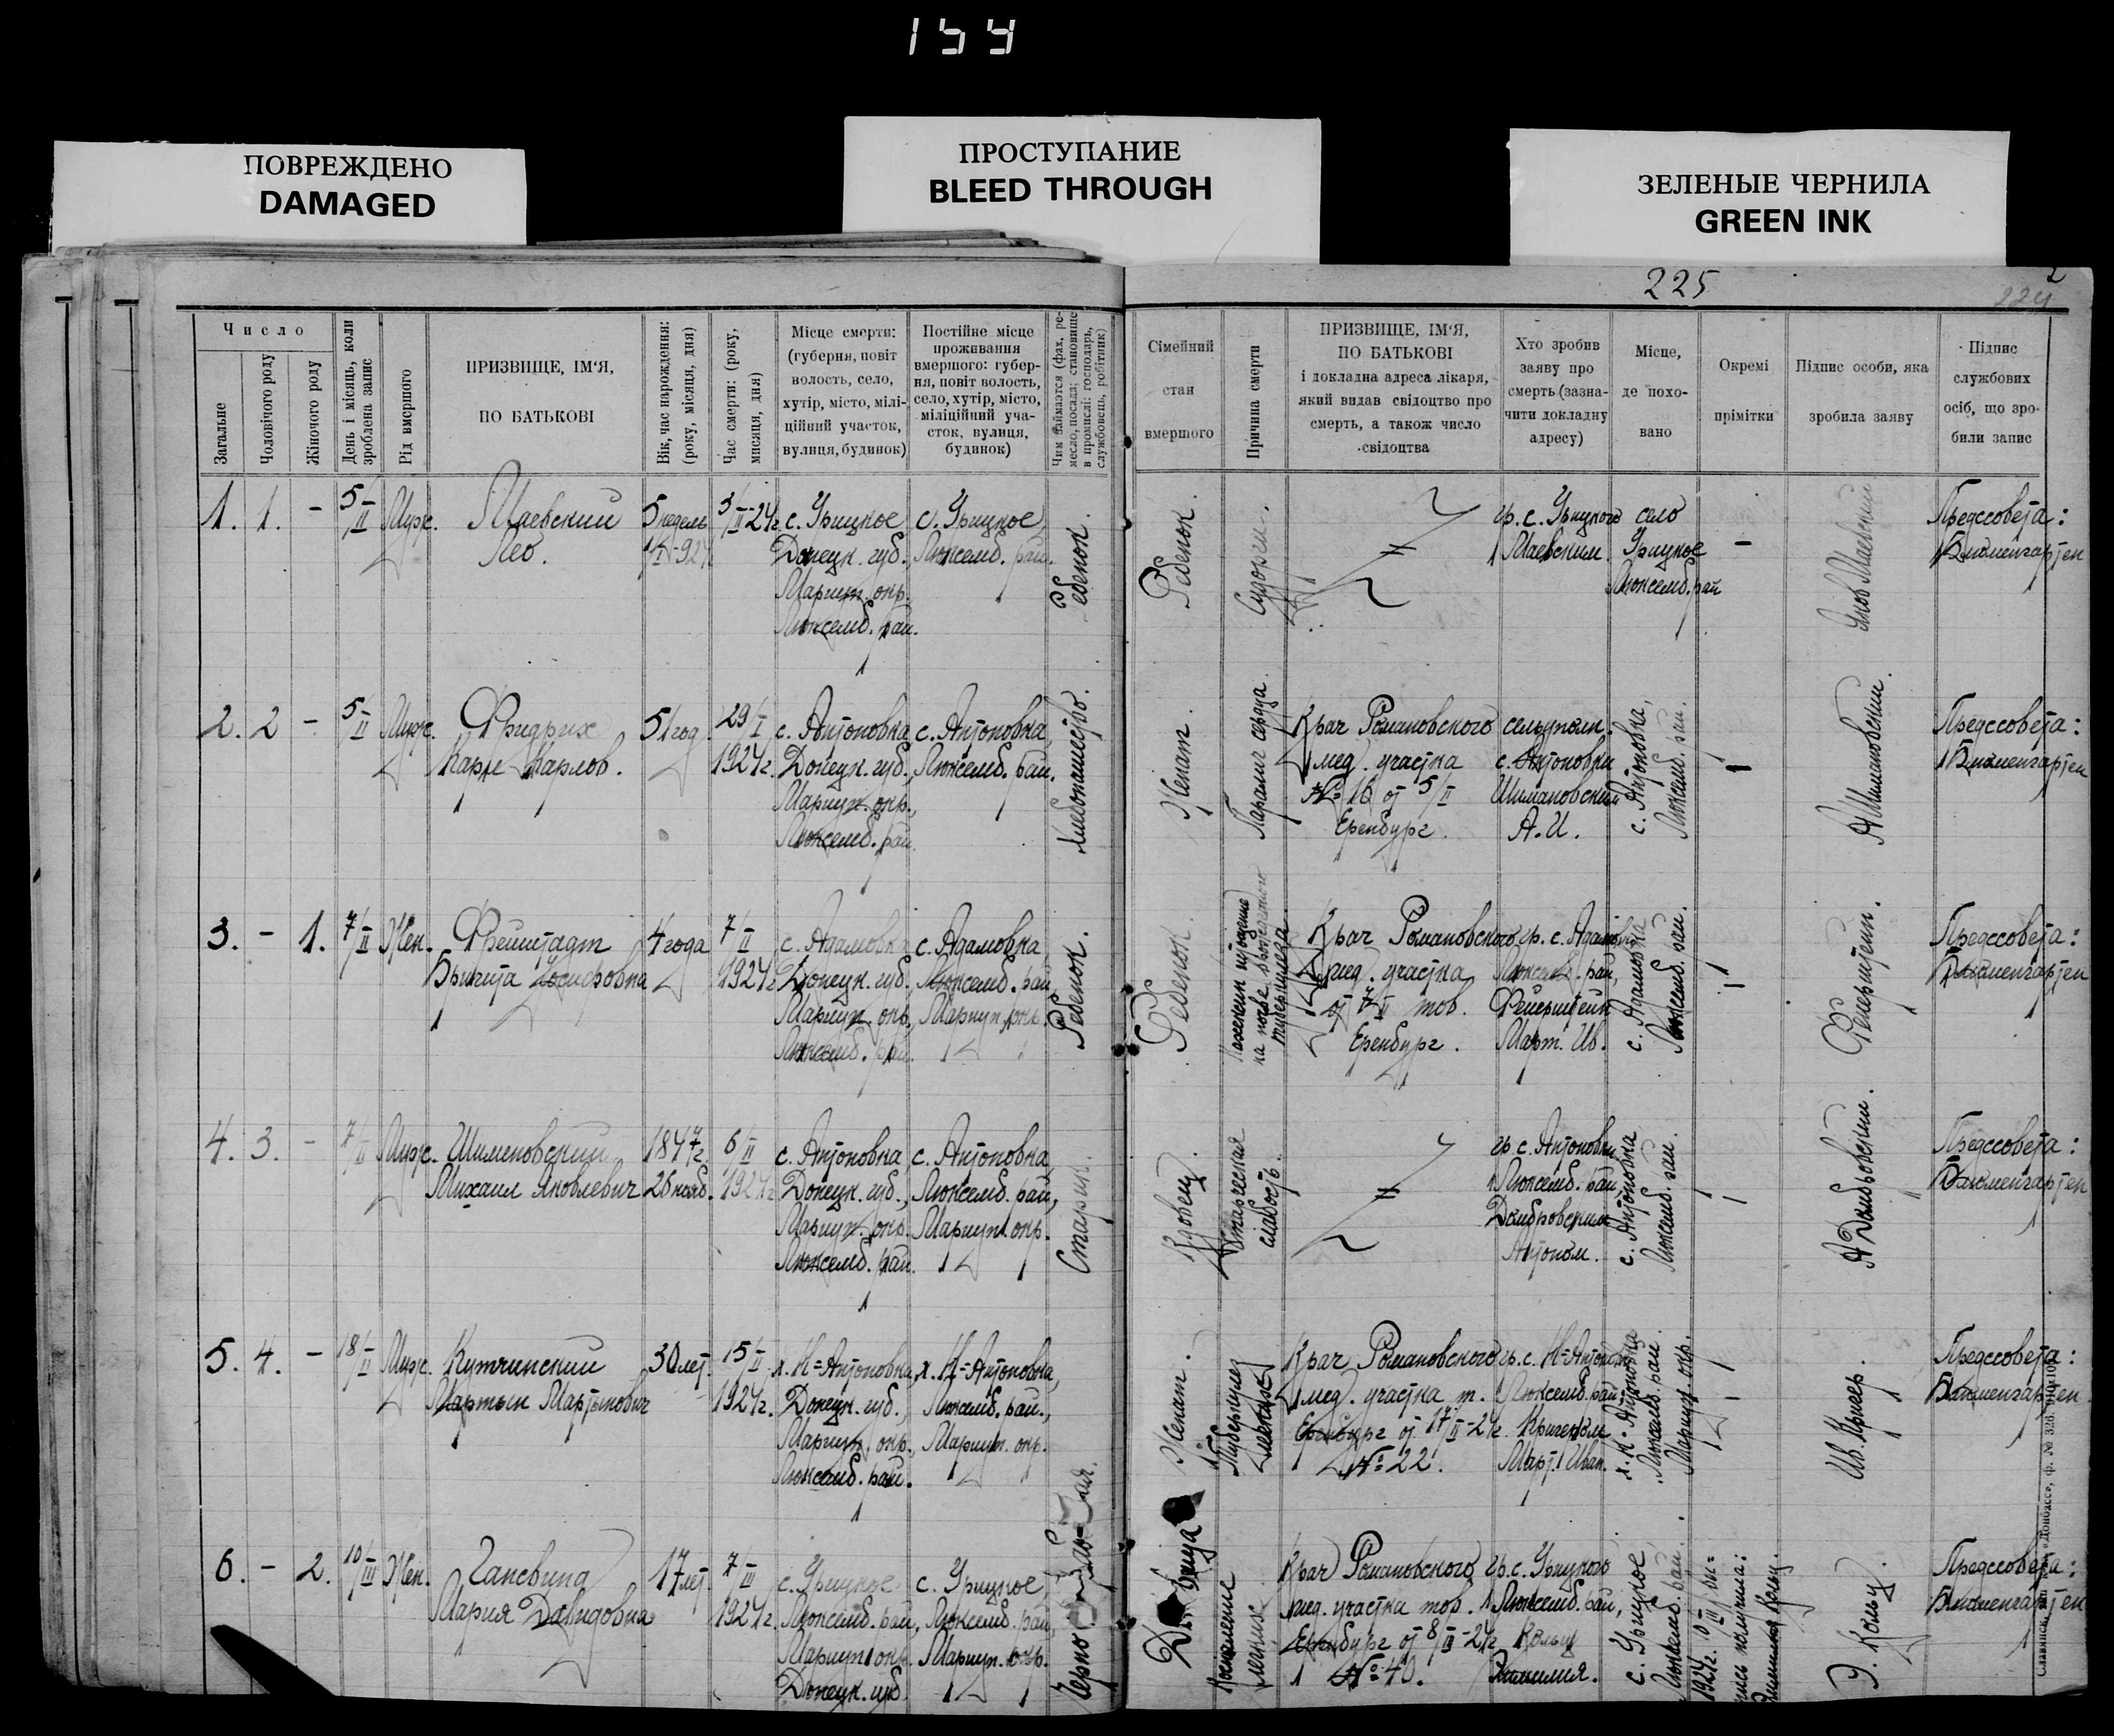 154
ПОВРЕЖДЕНО
DAMAGED
ПРОСТУПАНИЕ
BLEED THROUGH
ЗЕЛЕНЫЕ ЧЕРНИЛА
GREEN INK
225
2
224
Число
Загальне
Чоловічого роду
Жіночого роду
День і місяць, коли
зроблена запис
Рід вмершого
ПРИЗВИЩЕ, ІМ‘Я,
ПО БАТЬКОВІ
Вік, час народження:
(року, місяця, дня)
Час смерти: (року,
місяця, дня)
Місце смерти:
(губерня, повіт
волость, село,
хутір, місто, мілі-
ційний участок,
вулиця, будинок)
Постійне місце
проживання
вмершого: губер-
ня, повіт волость,
село, хутір, місто,
міліційний уча-
сток, вулиця,
будинок)
Чим займаэтся (фах, ре-
месло, посада; становище
в промислі: господарь,
службовець, робітник)
Сімейний
стан
вмершого
Причина смерти
ПРИЗВИЩЕ, ІМ‘Я,
ПО БАТЬКОВІ
і докладна адреса лікаря,
який видав свідоцтво про
смерть, а також число
свідоцтва
Хто зробив
заяву про
смерть (зазна-
чити докладну
адресу)
Місце,
де похо-
вано
Окремі
прімітки
Підпис особи, яка
зробила заяву
Підпис
службових
осіб, що зро-
били запис
1. 1. - 5/II Муж.
Маевский
Лео.
5 недель
3/II-24г.
с. Урицкое
Донецк. губ.
Мариуп. окр.
Люксемб. рай.
с. Урицкое,
Люксемб. рай.
Ребенок.
Ребенок.
Судороги.
=
гр. с. Урицкого
Маевским
село
Урицкое
Люксемб. рай
-
Маевский
Предсовета:
2. 2 - 5/II Муж.
Фридрих
Карле Карлов.
51 год
29/I
1924г.
с. Антоновка
Донецк. губ.,
Мариуп. окр.,
Люксемб. рай
с. Антоновка,
Люксемб. рай.
Хлебопашество.
Женат.
Паралич сердца.
Врач Романовского
мед. участка
№ 16 от 5/II
Еренбург.
сельуполн.
с. Антоновки
Шимановский
А. И.
с. Антоновка,
Люксемб. рай.
-
А Шимановский.
Предсовета:
3. - 1. 7/II Жен.
Бригита Иосифовна
4 года
7/II
1924г.
с. Адамовка
Донецк. губ.,
Мариуп. окр.,
Люксемб. рай.
с. Адамовка,
Люксемб. рай,
Мариуп. окр.
Ребенок.
Ребенок.
на почве врожденного
туберкулеза
Врач Романовского
мед. участка
от 7/II тов.
Еренбург.
гр. с. Адамовки
Люксемб. рай,
Март. Ив.
с. Адамовка
Люксемб. рай.
Предсовета:
4. 3. - 7/II Муж.
Шимановский
Михаил Яковлевич
1847г.
26 нояб.
6/II
1924г.
с. Антоновка
Донецк. губ.,
Мариуп. окр.
Люксемб. рай.
с. Антоновка,
Люксемб. рай,
Мариуп. окр.
Старик.
Вдовец.
Старческая
слабость.
=
гр. с. Антоновки
Люксемб. рай,
Домбровским
Антоном.
с. Антоновка
Люксемб. рай.
А Домбровский.
Предсовета:
5. 4. - 18/II Муж.
Кутчинский
Мартын Мартынович
30 лет.
15/II
1924г.
х. Н=Антоновка,
Донецк. губ.,
Мариуп. окр.,
Люксемб. рай.
х. Н=Антоновка,
Люксемб. рай.,
Мариуп. окр.
Женат.
Туберкулез
легких
Врач Романовского
мед. участка т.
Еренбург от 17/II-24г.
№ 22.
гр. с. Н=Антон.
Люксемб. рай
Март. Иван.
х. Н-Антоновка
Люксемб. рай.
Мариуп. окр.
Ив. Кригер.
Предсовета:
6. - 2. 10/III Жен.
Мария Давидовна
17 лет.
7/III
1924г.
с. Урицкое
Люксемб. рай,
Мариуп. окр.
Донецк. губ.
с. Урицкое,
Люксемб. рай,
Мариуп. окр.
Воспаление
легких
Врач Романовского
мед. участка тов.
Еренбург от 8/III-24г
№ 40.
гр. с. Урицкого
Люксемб. рай,
Кольц
с. Урицкое,
Люксемб. рай.
1924г. 10/III
получила:
Э. Кольц.
Предсовета: